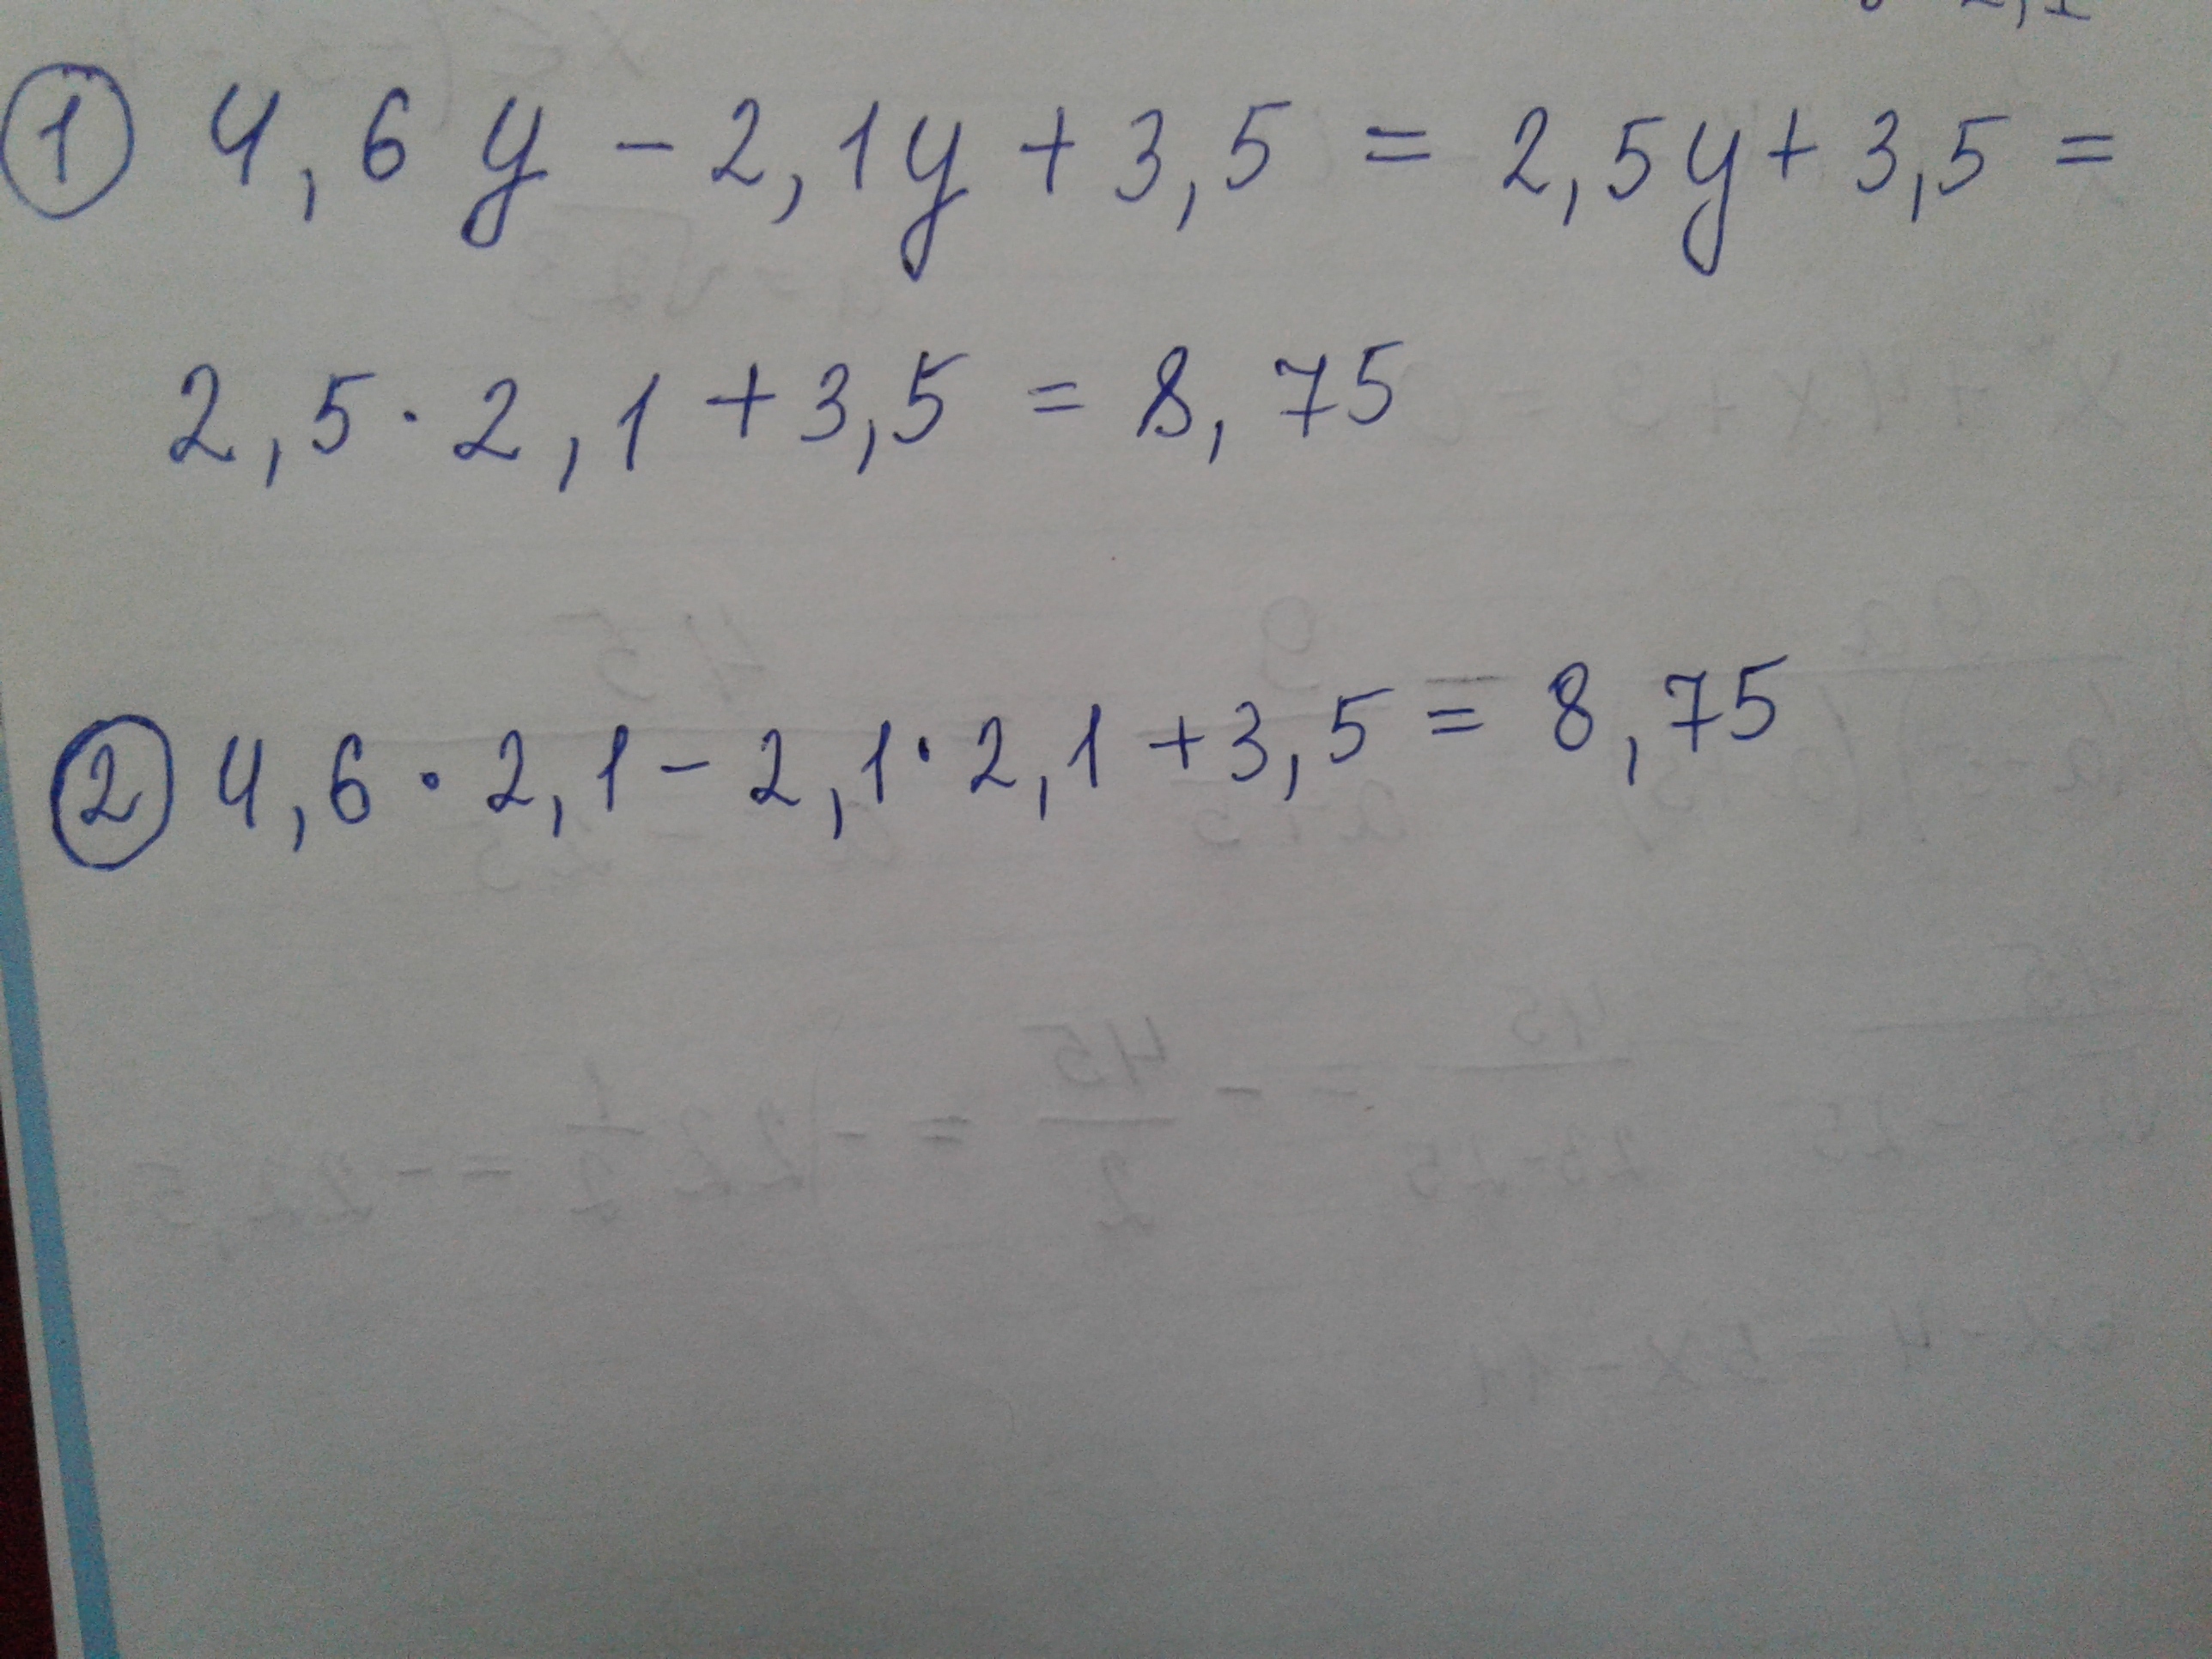 2,1
① 4,6y - 2,1y + 3,5 = 2,5y + 3,5 =
2,5 · 2,1 + 3,5 = 8,75
② 4,6 · 2,1 - 2,1 · 2,1 + 3,5 = 8,75